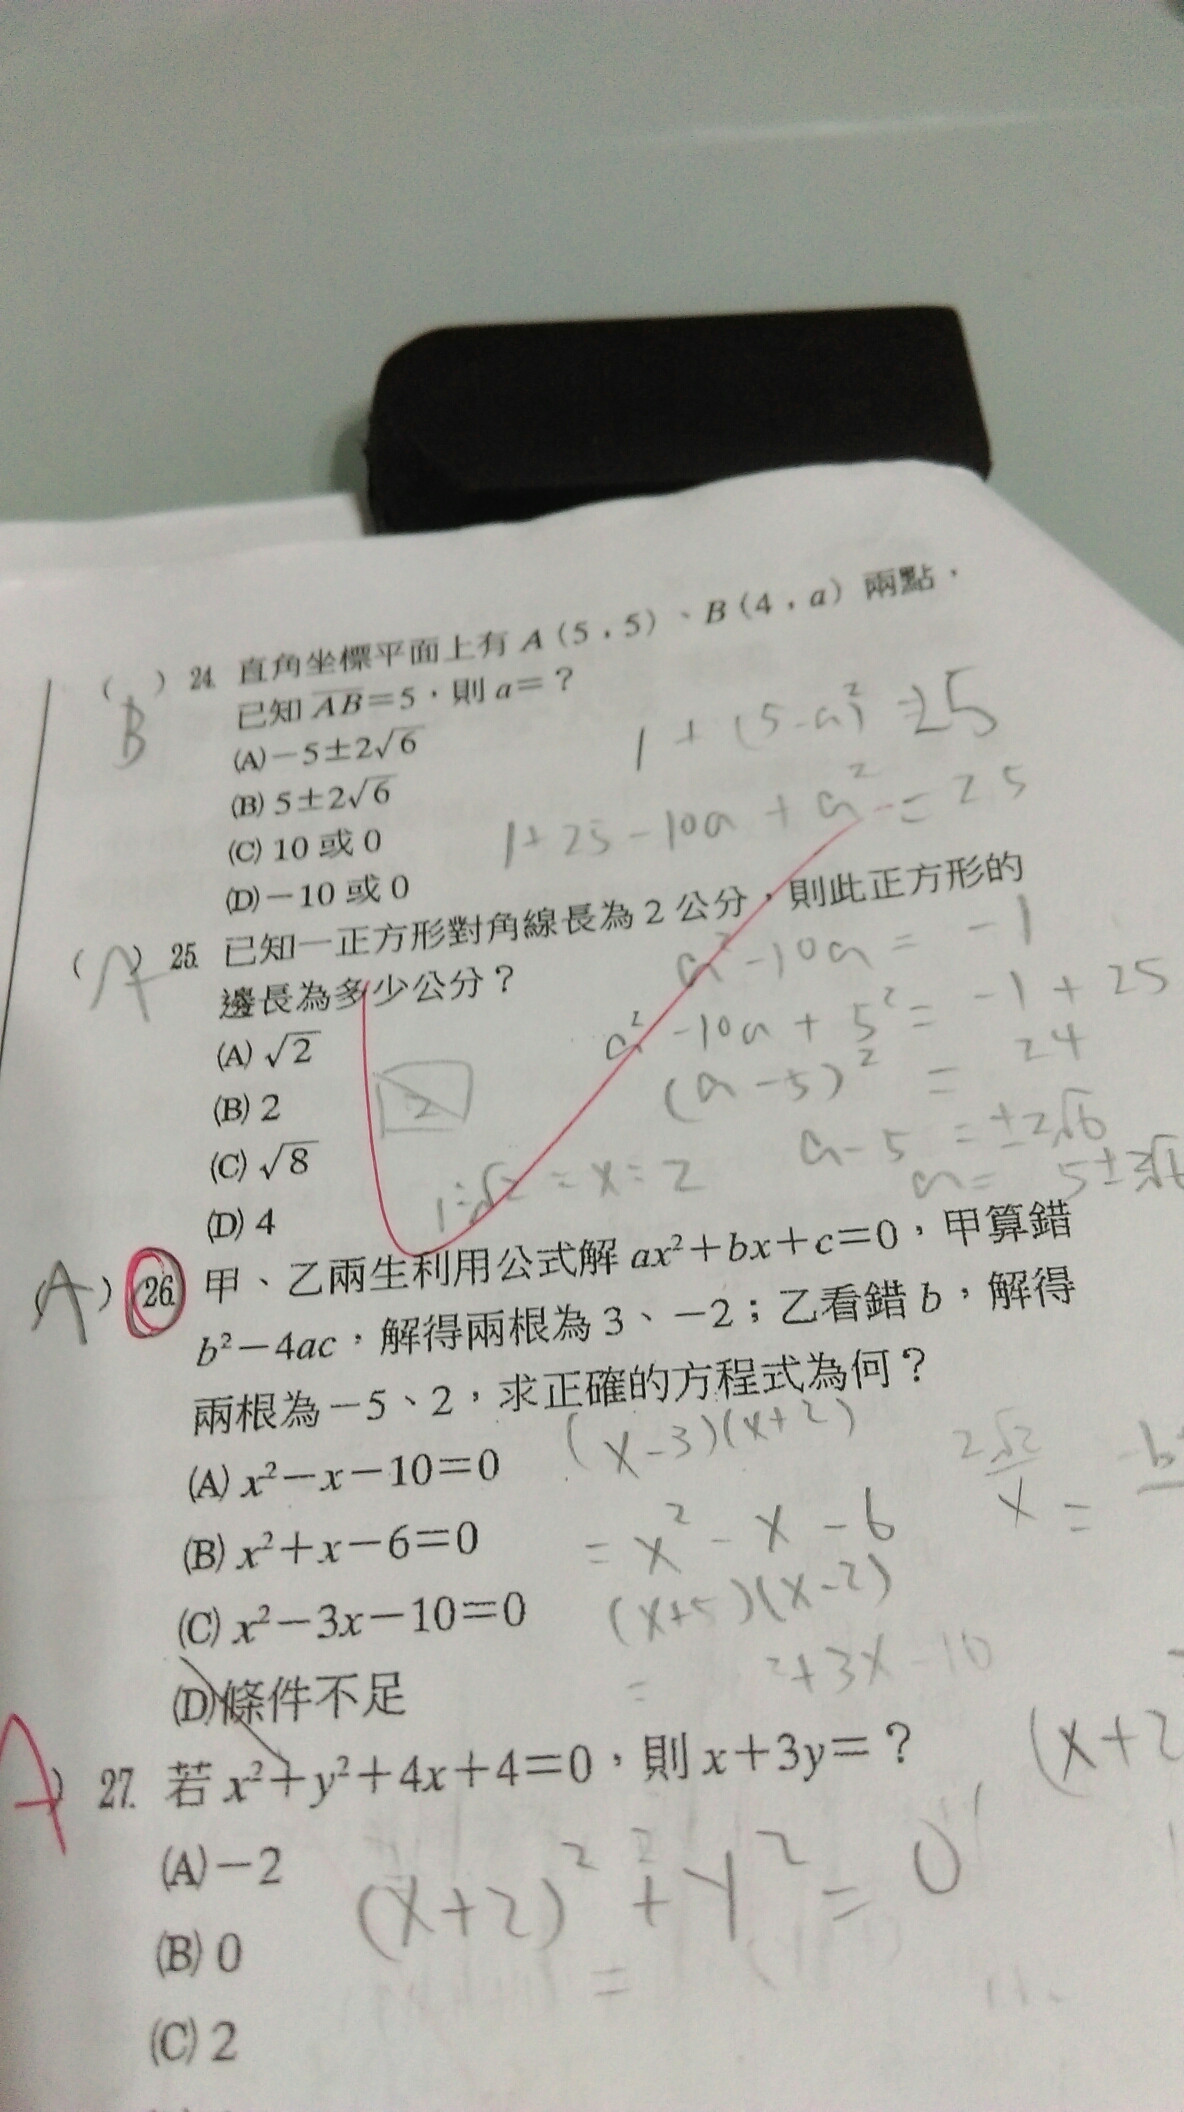 ( B ) 24. 直角坐標平面上有 A(5,5)、B(4,a) 兩點,
已知 AB=5,則 a=?
(A) −5±2√6
(B) 5±2√6
(C) 10 或 0
(D) −10 或 0
1 + (5-a)² = 25
1+25-10a+a² = 25
a²-10a = -1
a²-10a+5² = -1+25
(a-5)² = 24
a-5 = ±2√6
a=
( A ) 25. 已知一正方形對角線長為 2 公分,則此正方形的
邊長為多少公分?
(A) √2
(B) 2
(C) √8
(D) 4
2
1:√2 = x:2
( A ) 26. 甲、乙兩生利用公式解 ax²+bx+c=0,甲算錯
b²−4ac,解得兩根為 3、−2;乙看錯 b,解得
兩根為−5、2,求正確的方程式為何?
(A) x²−x−10=0
(B) x²+x−6=0
(C) x²−3x−10=0
(D) 條件不足
(x-3)(x+2)
= x²-x-6
(x+5)(x-2)
= ²+3x-10
x =
A ) 27. 若 x²+y²+4x+4=0,則 x+3y=?
(A) −2
(B) 0
(C) 2
(x+2)²+y² = 0
=
(x+2